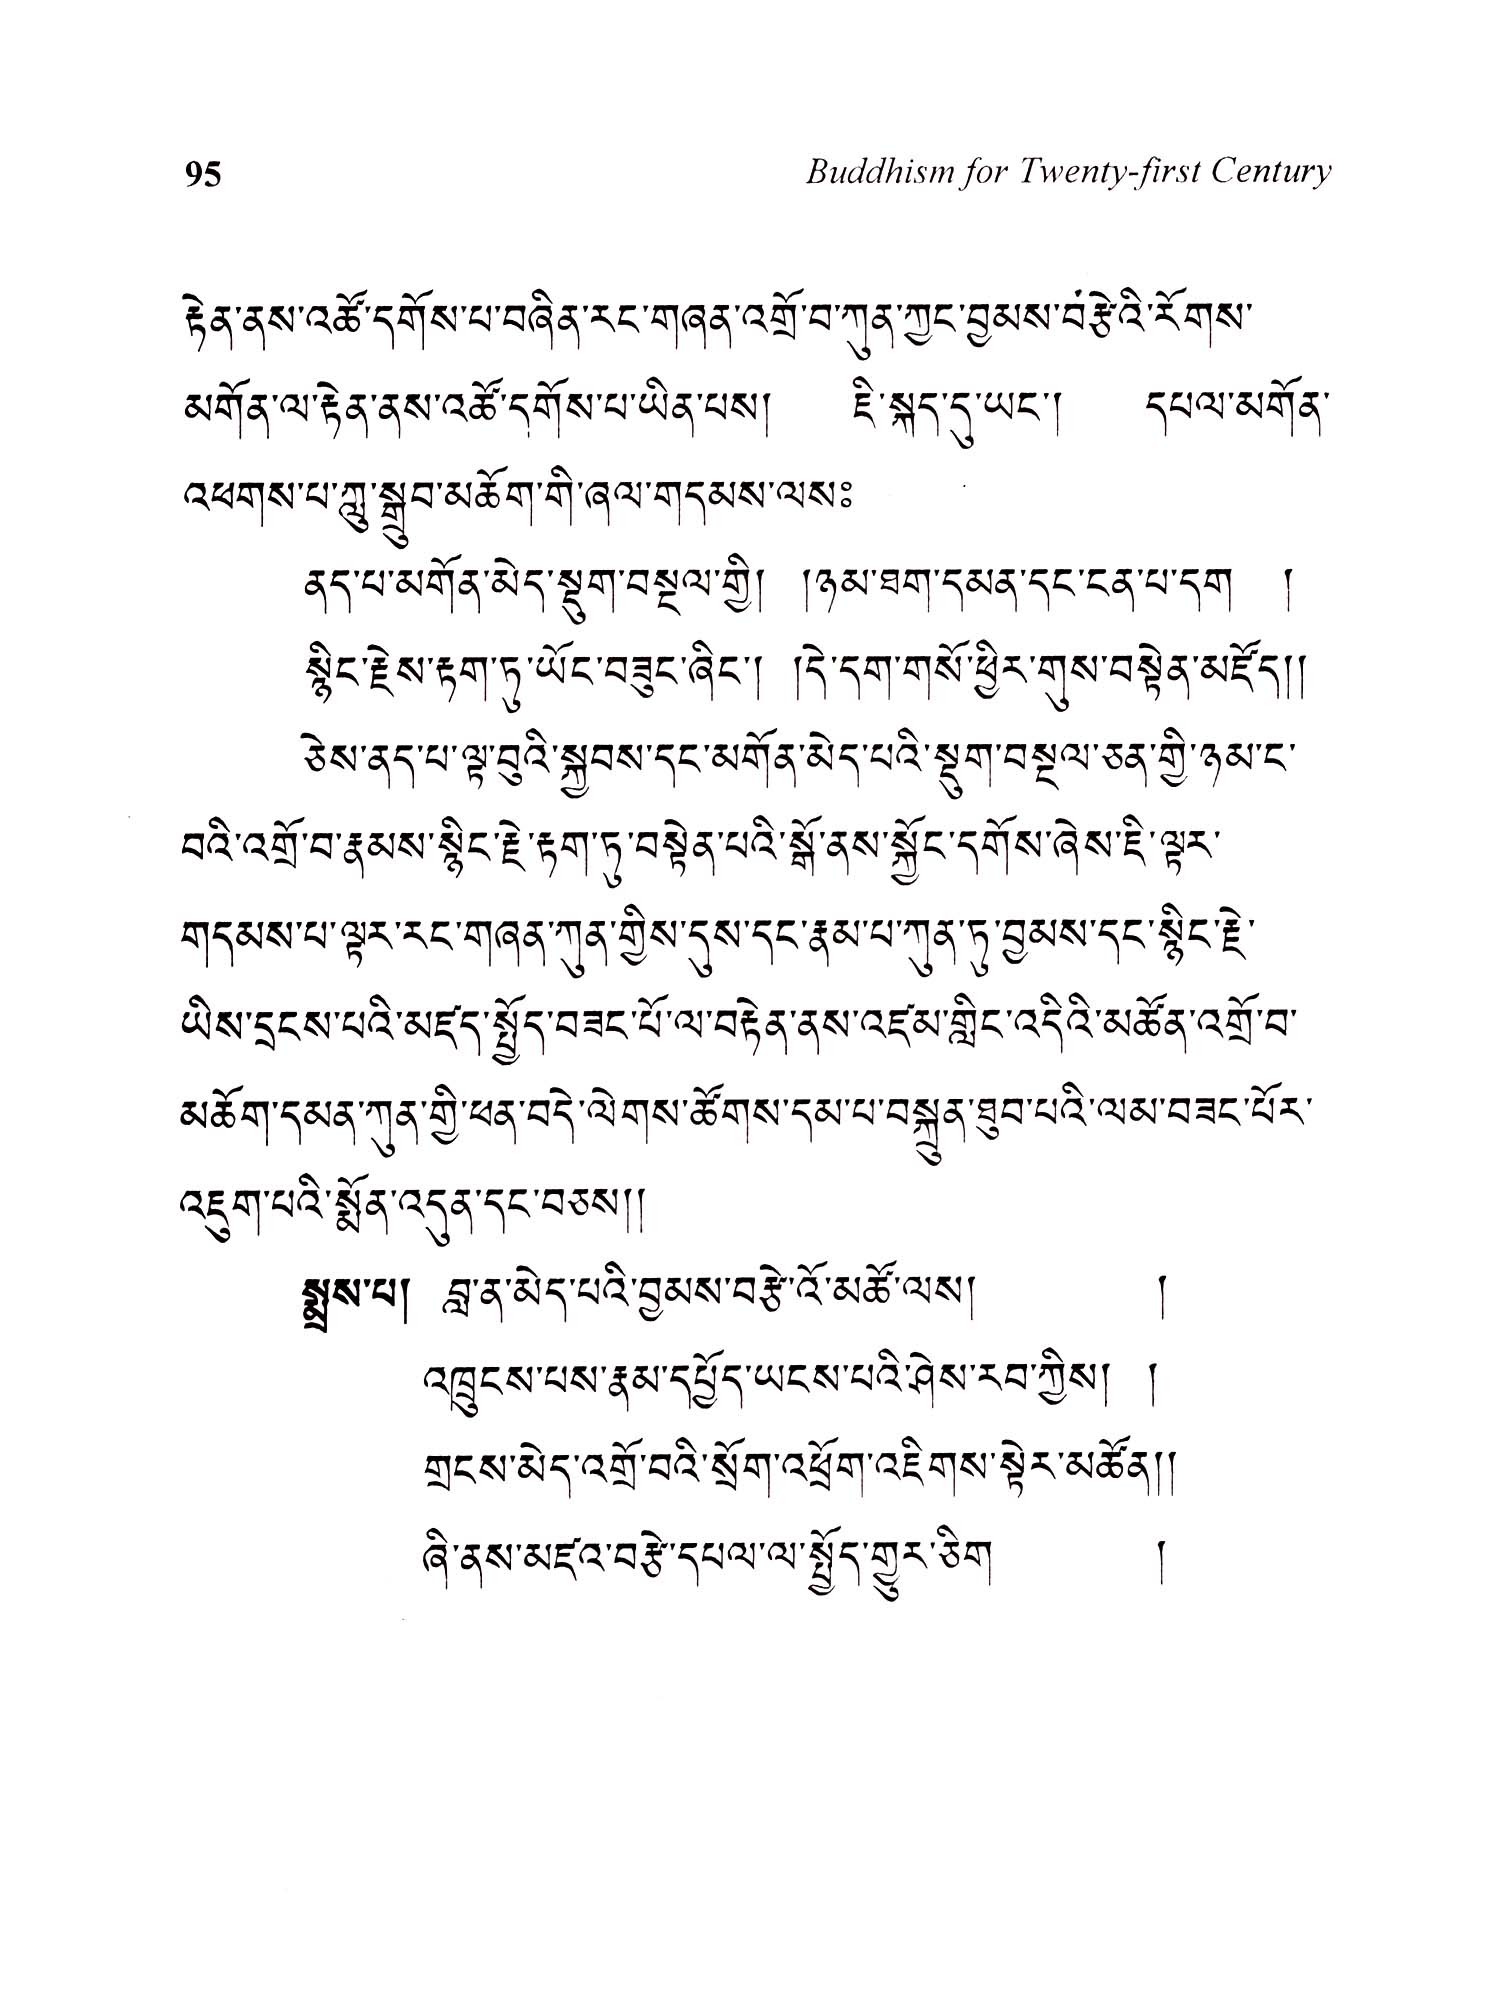 95 Buddhism for Twenty-first Century
རྟེན་ནས་འཚོ་དགོས་པ་བཞིན་རང་གཞན་འགྲོ་བ་ཀུན་ཀྱང་བྱམས་བརྩེའི་རོགས་
མགོན་ལ་རྟེན་ནས་འཚོ་དགོས་པ་ཡིན་པས། ཇི་སྐད་དུ་ཡང་། དཔལ་མགོན་
འཕགས་པ་ཀླུ་སྒྲུབ་མཆོག་གི་ཞལ་གདམས་ལསཿ
ནད་པ་མགོན་མེད་སྡུག་བསྔལ་གྱི། །ཉམ་ཐག་དམན་དང་ངན་པ་དག །
སྙིང་རྗེས་རྟག་ཏུ་ཡོང་བཟུང་ཞིང་། །དེ་དག་གསོ་ཕྱིར་གུས་བསྟེན་མཛོད།།
ཅེས་ནད་པ་ལྟ་བུའི་སྐྱབས་དང་མགོན་མེད་པའི་སྡུག་བསྔལ་ཅན་གྱི་ཉམ་ང་
བའི་འགྲོ་བ་རྣམས་སྙིང་རྗེ་རྟག་ཏུ་བསྟེན་པའི་སྒོ་ནས་སྐྱོང་དགོས་ཞེས་ཇི་ལྟར་
གདམས་པ་ལྟར་རང་གཞན་ཀུན་གྱིས་དུས་དང་རྣམ་པ་ཀུན་ཏུ་བྱམས་དང་སྙིང་རྗེ་
ཡིས་དྲངས་པའི་མཛད་སྤྱོད་བཟང་པོ་ལ་བརྟེན་ནས་འཛམ་གླིང་འདིའི་མཚོན་འགྲོ་བ་
མཆོག་དམན་ཀུན་གྱི་ཕན་བདེ་ལེགས་ཚོགས་དམ་པ་བསྐྲུན་ཐུབ་པའི་ལམ་བཟང་པོར་
འཇུག་པའི་སྨོན་འདུན་དང་བཅས།།
སྨྲས་པ། བླ་ན་མེད་པའི་བྱམས་བརྩེ་འོ་མཚོ་ལས། །
འཁྲུངས་པས་རྣམ་དཔྱོད་ཡངས་པའི་ཤེས་རབ་ཀྱིས། །
གྲངས་མེད་འགྲོ་བའི་སྲོག་འཕྲོག་འཇིགས་སྟེར་མཚོན།།
ཞི་ནས་མཛའ་བརྩེ་དཔལ་ལ་སྤྱོད་གྱུར་ཅིག །